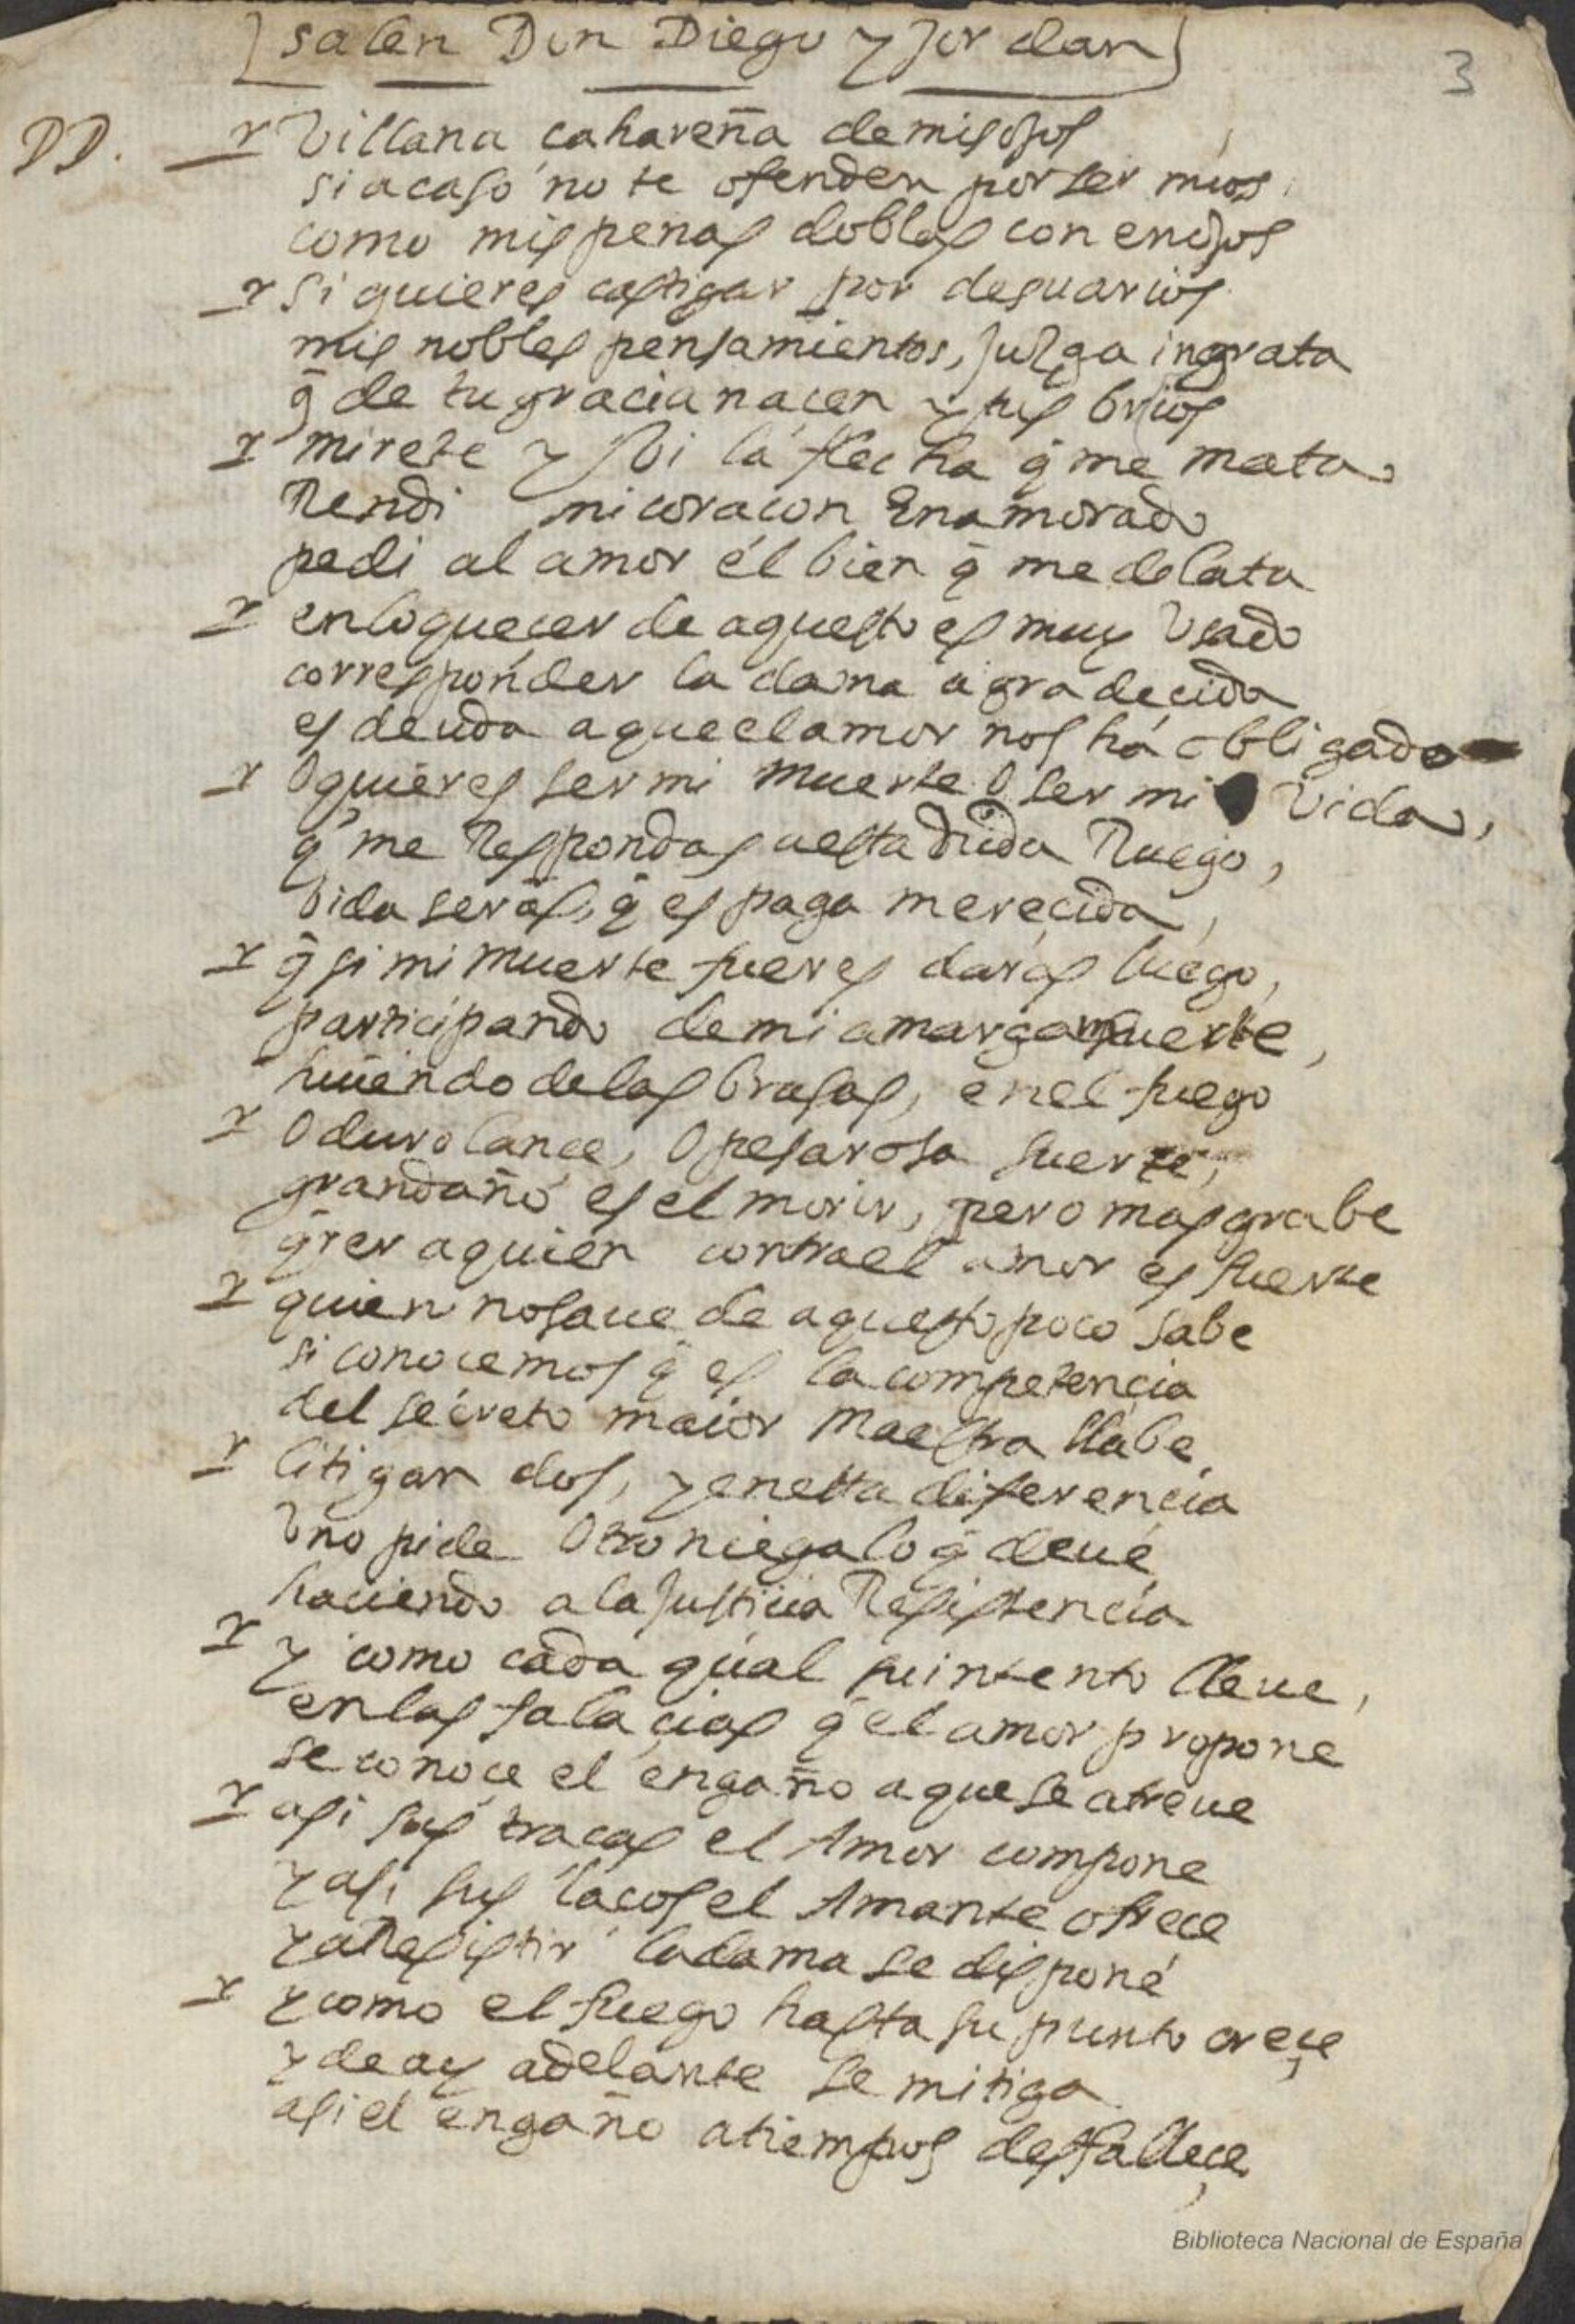 [salen Don Diego y Jordan]
3
DD. Villana cahareña de mis ojos
si acaso no te ofenden por ser mios
como mis penas doblas con enojos
si quieres castigar por desuarios
mis nobles pensamientos, juzga ingrata
q̃ de tu gracia nacen y tus brios
mirete y vi la flecha q̃ me mata
Rendi mi coracon Enamorado
pedi al amor el bien q̃ me dilata
enloquecer de aquesto es muy Vsado
corresponder la dama agradecida
es deuda a que el amor nos há obligado
O quieres ser mi muerte O ser mi Vida,
q̃ me Respondas a esta duda Ruego,
Vida serás, q̃ es paga merecida,
q̃ si mi muerte fueres darás luego,
participando de mi amarga muerte,
huiendo de las brasas, en el fuego
O duro lance, O pesarosa suerte,
gran daño es el morir, pero mas grabe
q̃rer a quien contra el amor es fuerte
quien no saue de aquesto poco sabe
si conocemos q̃ es la competençia
del secreto maior maestra llabe
litigan dos, y en esta diferencia
Vno pide Otro niega lo q̃ deue
haciendo a la Justicia Resistencia
y como cada qual su intento lleue,
en las falaçias q̃ el amor propone
se conoçe el engaño a que se atreue
asi sus tracas el Amor compone
y asi sus lacos el Amante ofrece
y a Resistir la dama se dispone
y como el fuego hasta su punto creçe
y de ay adelante se mitiga
asi el engaño a tiempos desfalleçe
Biblioteca Nacional de España